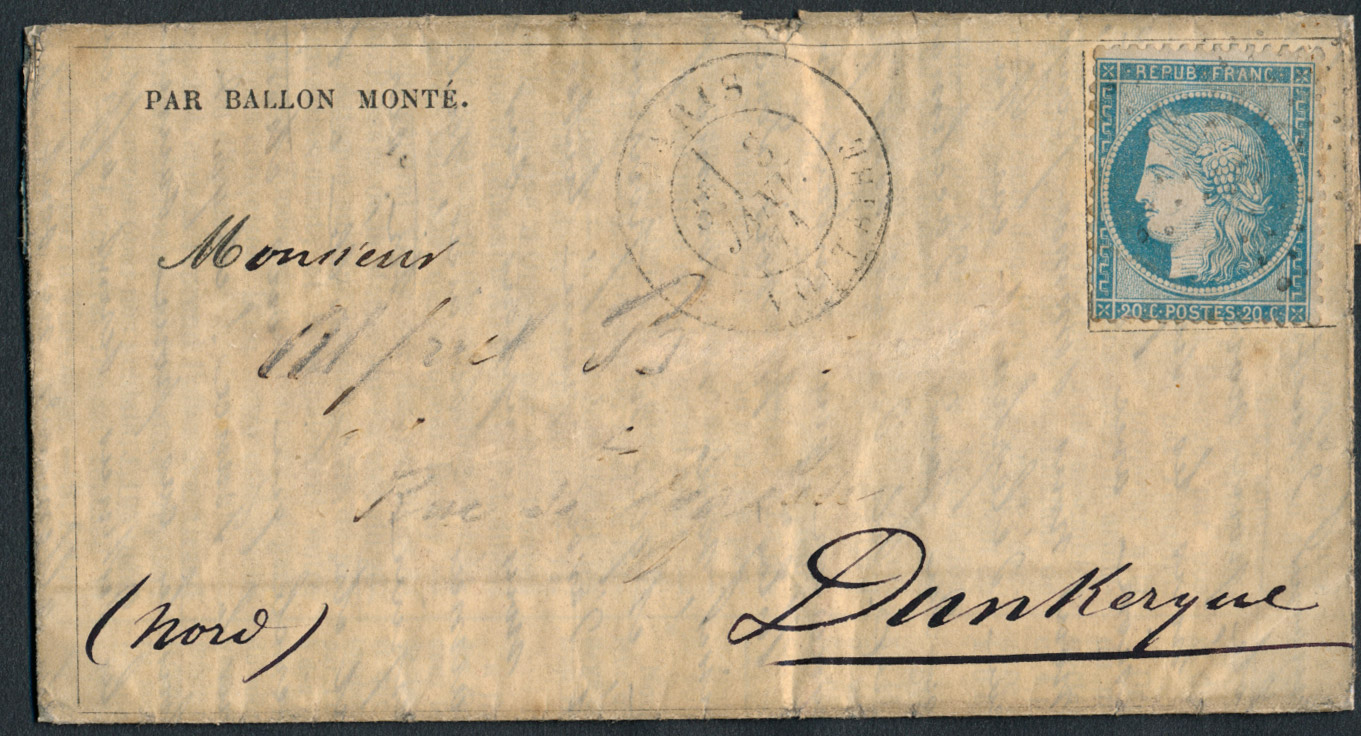 PAR BALLON MONTÉ.
PARIS
JANV.
71
REPUB. FRANC.
20·C·POSTES·20·C
Monsieur
Alfred B
Rue de
Dunkerque
(Nord)